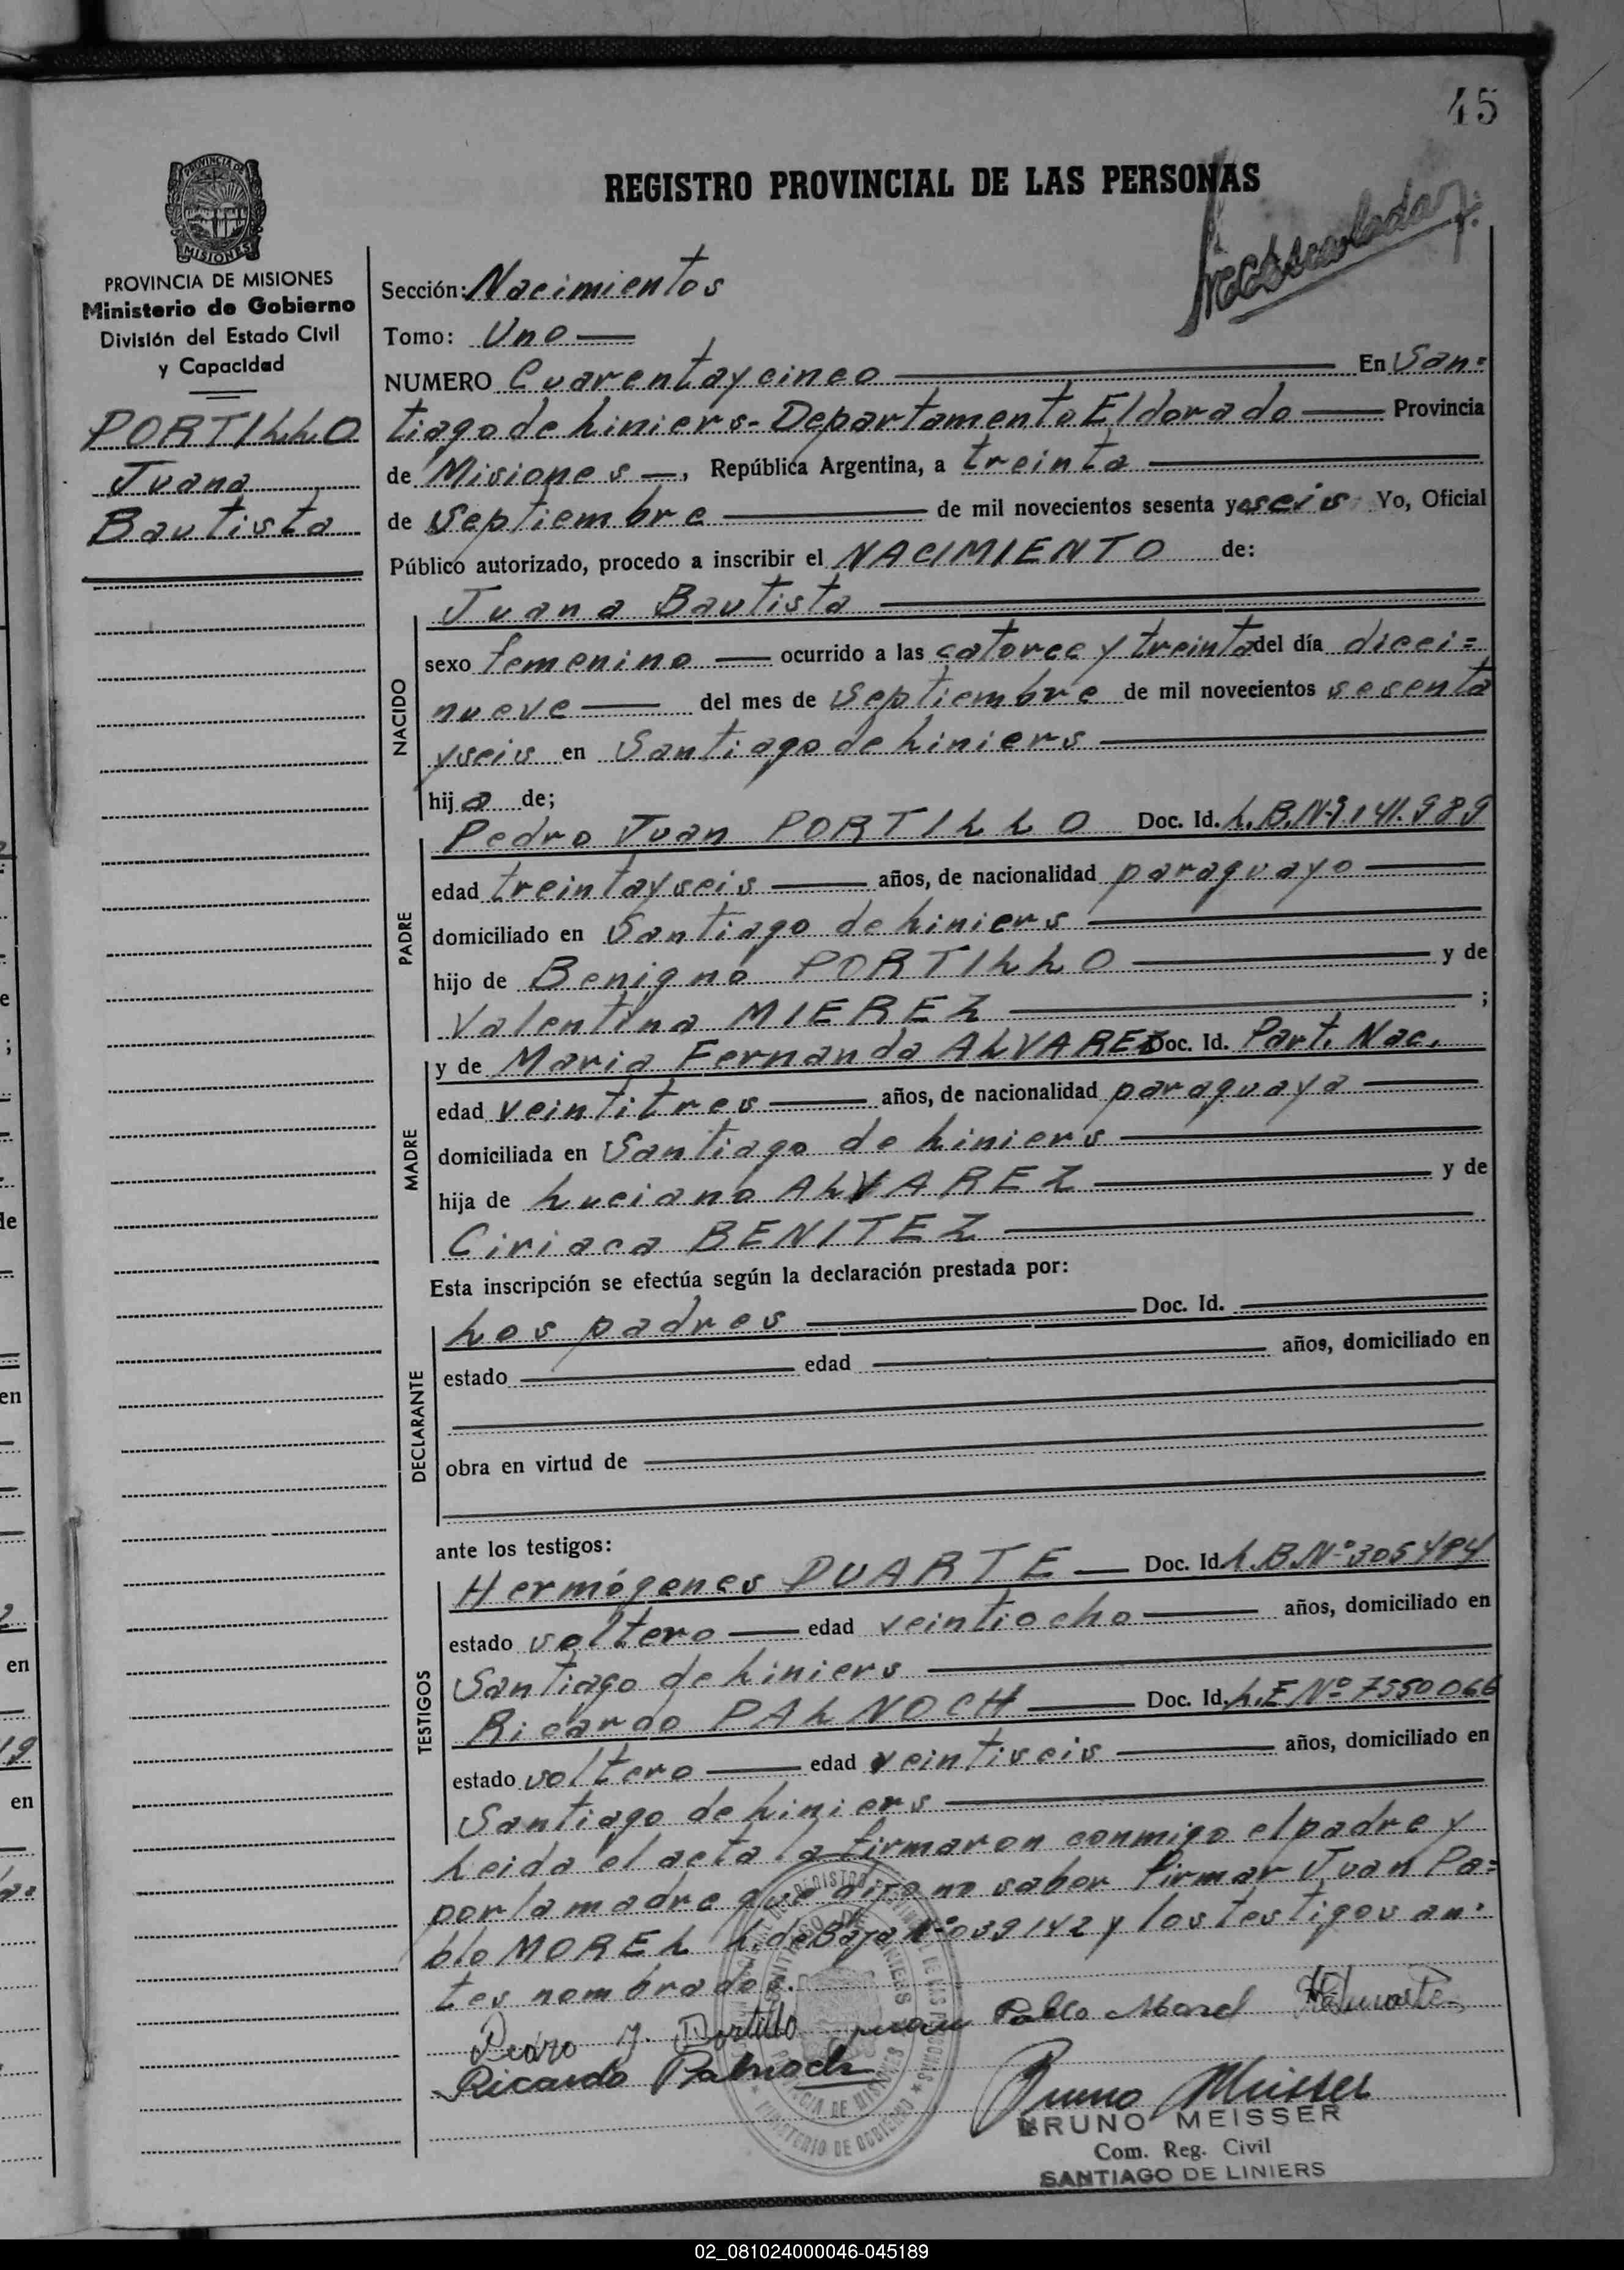 45
REGISTRO PROVINCIAL DE LAS PERSONAS
PROVINCIA DE MISIONES
Ministerio de Gobierno
División del Estado Civil
y Capacidad
PORTILLO
Juana
Bautista
Sección: Nacimientos
Tomo: Uno
NUMERO Cuarentaycinco En San=
tiago de Liniers- Departamento Eldorado Provincia
de Misiones, República Argentina, a treinta
de Septiembre de mil novecientos sesenta y seis Yo, Oficial
Público autorizado, procedo a inscribir el NACIMIENTO de:
Juana Bautista
NACIDO
sexo femenino ocurrido a las catorce y treinta del día dieci=
nueve del mes de Septiembre de mil novecientos sesenta
yseis en Santiago de Liniers
hija de;
PADRE
Pedro Juan PORTILLO Doc. Id. L.B.Nº 141.989
edad treintayseis años, de nacionalidad paraguayo
domiciliado en Santiago de Liniers
hijo de Benigno PORTILLO y de
Valentina MIEREZ ;
MADRE
y de Maria Fernanda ALVAREZ Doc. Id. Part. Nac.
edad veintitres años, de nacionalidad paraguaya
domiciliada en Santiago de Liniers
hija de Luciano ALVAREZ y de
Ciriaca BENITEZ
Esta inscripción se efectúa según la declaración prestada por:
DECLARANTE
Los padres Doc. Id.
estado edad años, domiciliado en
obra en virtud de
ante los testigos:
TESTIGOS
Hermógenes DUARTE Doc. Id. L.B.Nº 305484
estado soltero edad veintiocho años, domiciliado en
Santiago de Liniers
Ricardo PALNOCH Doc. Id. L.E Nº 7550066
estado soltero edad veintiseis años, domiciliado en
Santiago de Liniers
Leida el acta la firmaron conmigo el padre y
por la madre que dijo no saber firmar Juan Pa=
blo MOREL L. de Baja Nº 039142 y los testigos an=
tes nombrados.
Pedro J. Portillo Juan Pablo Morel H Duarte
Ricardo Palnoch
Bruno Meisser
BRUNO MEISSER
Com. Reg. Civil
SANTIAGO DE LINIERS
02_081024000046-045189